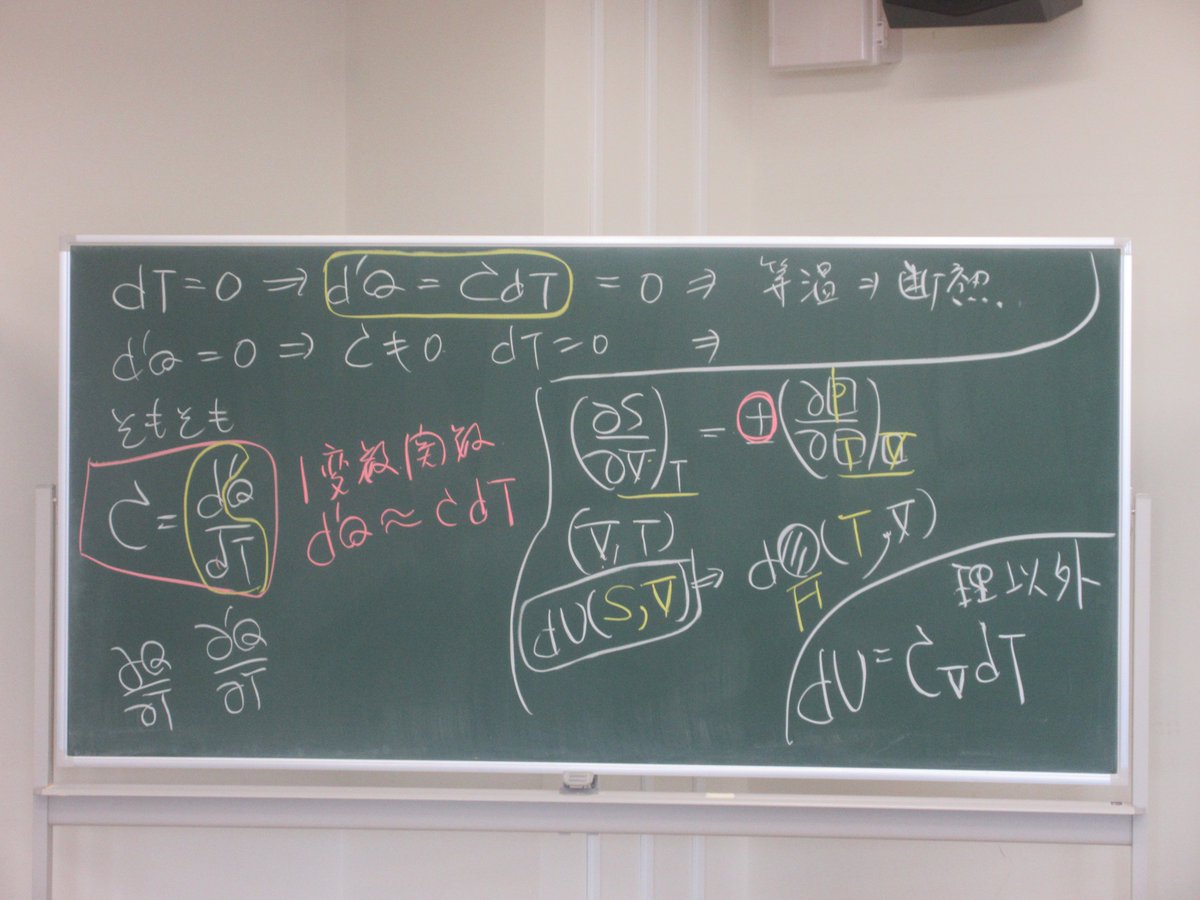 dT=0 ⇒ d'Q = CdT = 0 ⇒ 等温 ⇒ 断熱.
d'Q = 0 ⇒ C≠0 dT=0 ⇒
そもそも
C = d'Q/dT
1変数関数
d'Q ~ CdT
∂Q/∂T ∂'Q/∂T
(∂S/∂V)_T = +(∂P/∂T)_V
(V,T)
dU(S,V) ⇒ d (T,V)
F
理以外
dU = C_V dT